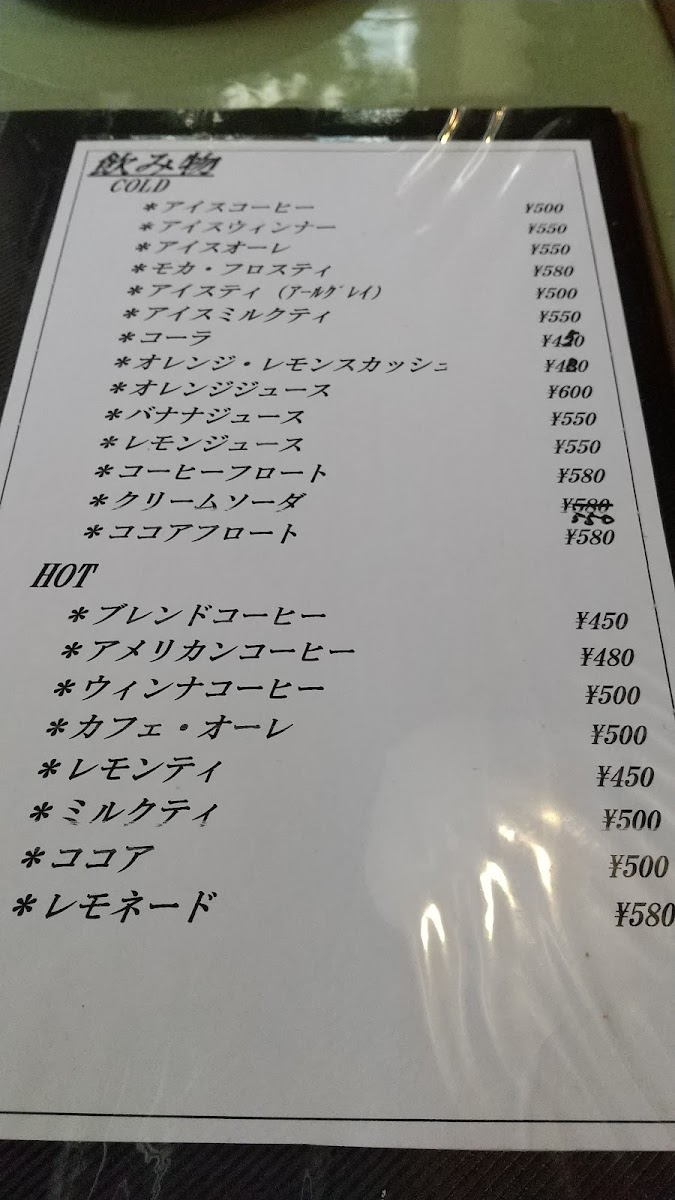 飲み物
COLD
＊アイスコーヒー ¥500
＊アイスウィンナー ¥550
＊アイスオーレ ¥550
＊モカ・フロスティ ¥580
＊アイスティ (ｱｰﾙｸﾞﾚｲ) ¥500
＊アイスミルクティ ¥550
＊コーラ ¥450
＊オレンジ・レモンスカッシュ ¥480
＊オレンジジュース ¥600
＊バナナジュース ¥550
＊レモンジュース ¥550
＊コーヒーフロート ¥580
＊クリームソーダ ¥580
550
＊ココアフロート ¥580
HOT
＊ブレンドコーヒー ¥450
＊アメリカンコーヒー ¥480
＊ウィンナコーヒー ¥500
＊カフェ・オーレ ¥500
＊レモンティ ¥450
＊ミルクティ ¥500
＊ココア ¥500
＊レモネード ¥580